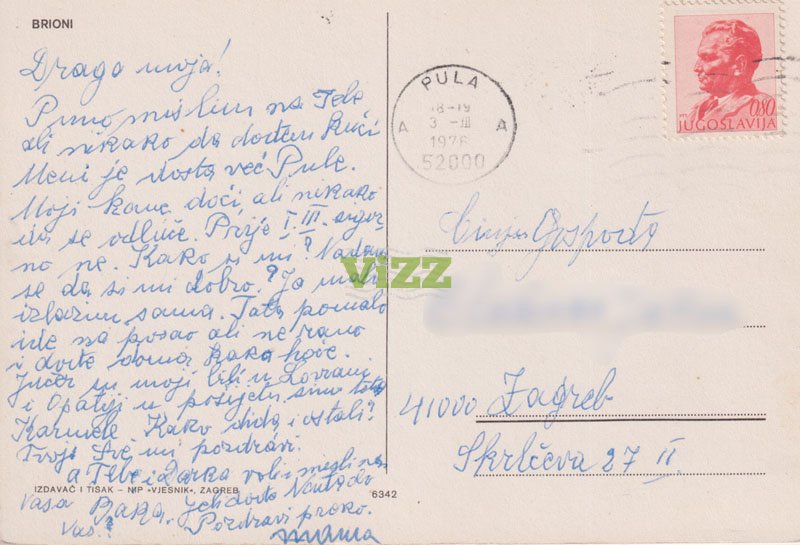 BRIONI
Draga moja!
Puno mislim na Tebe
ali nikako da dođem kući
Meni je dosta već Pule.
Moji kane doći ali nikako
da se odluče. Prije I. III. sigur
no ne. Kako si mi? Nadam
se da si mi dobro? Ja malo
izlazim sama. Tata pomalo
ide na posao ali ne rano
i dođe doma kako hoće.
Jučer su moji bili u Lovranu
i Opatiji u posjetu smo
Karmele Kako dida i ostali?
Tvoje sve mi pozdravi.
a Tebe i Darka voli i misli na
Vasa Baka. Jeli dođe
Vas!! Pozdravi
mama
IZDAVAČ I TISAK – NIP «VJESNIK», ZAGREB
6342
PULA
18-19
3 -III
1976
A A
52000
0.80
JUGOSLAVIJA
VIZZ
Gospođa
41000 Zagreb
Skrlčeva 27 II